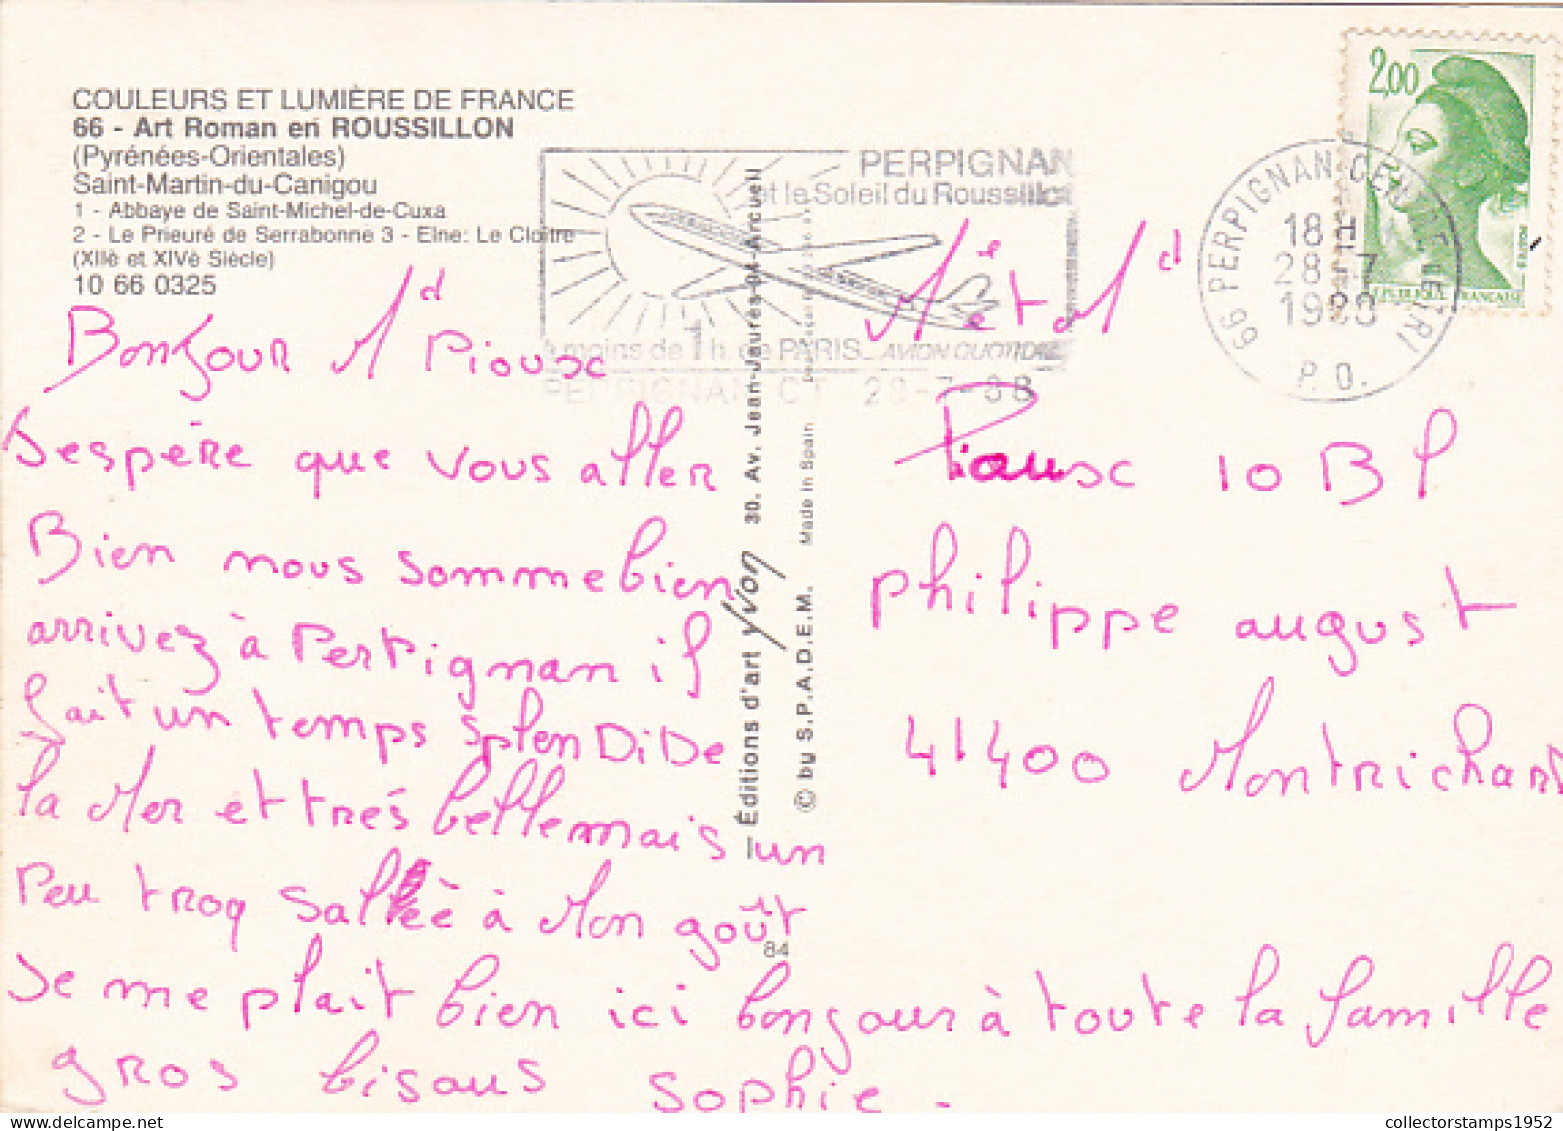 COULEURS ET LUMIÈRE DE FRANCE
66 - Art Roman en ROUSSILLON
(Pyrénées-Orientales)
Saint-Martin-du-Canigou
1 - Abbaye de Saint-Michel-de-Cuxa
2 - Le Prieuré de Serrabonne 3 - Elne: Le Cloître
(XIIè et XIVè Siècle)
10 66 0325
PERPIGNAN
et le Soleil du Roussillon
à moins de 1 h. de PARIS_ AVION QUOTIDIEN
PERPIGNAN CT 28-7-88
66 PERPIGNAN-CENTRE
18 H
28-7
1988
P.O.
2,00
RÉPUBLIQUE FRANÇAISE
Bonjour Md Piousc
J'espère que vous aller
Bien nous somme bien
arrivez à Perpignan il
fait un temps splenDiDe
la Mer et très belle mais un
Peu troq salée à Mon goût
Je me plait bien ici bonjour à toute la famille
gros bisous sophie.
Mè et Md
Piousc 10 Bl
philippe august
41400 Montrichard
Éditions d'art Yvon 30. Av. Jean-Jaurès-94-Arcueil
© by S.P.A.D.E.M. Made in Spain
84
collectorstamps1952